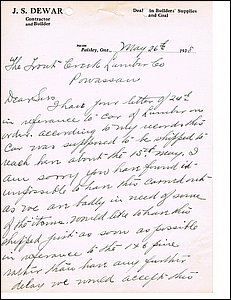 J. S. DEWAR
Contractor
and Builder
Deal in Builders' Supplies
and Coal
Paisley, Ont., May 26th 1925
The Trout Creek Lumber Co
Powassan
Dear Sirs
I have your letter of 24th
in referance to car of Lumber on
order. according to my records this
Car was supposed to be shipped to
reach here about the 15th May, I
am sorry you have found it
impossible to have this carried out
as we are badly in need of some
of the items. Would like to have this
shipped just as soon as possible
in referance to the 1x6 pine
rather than have any further
delay we would accept this